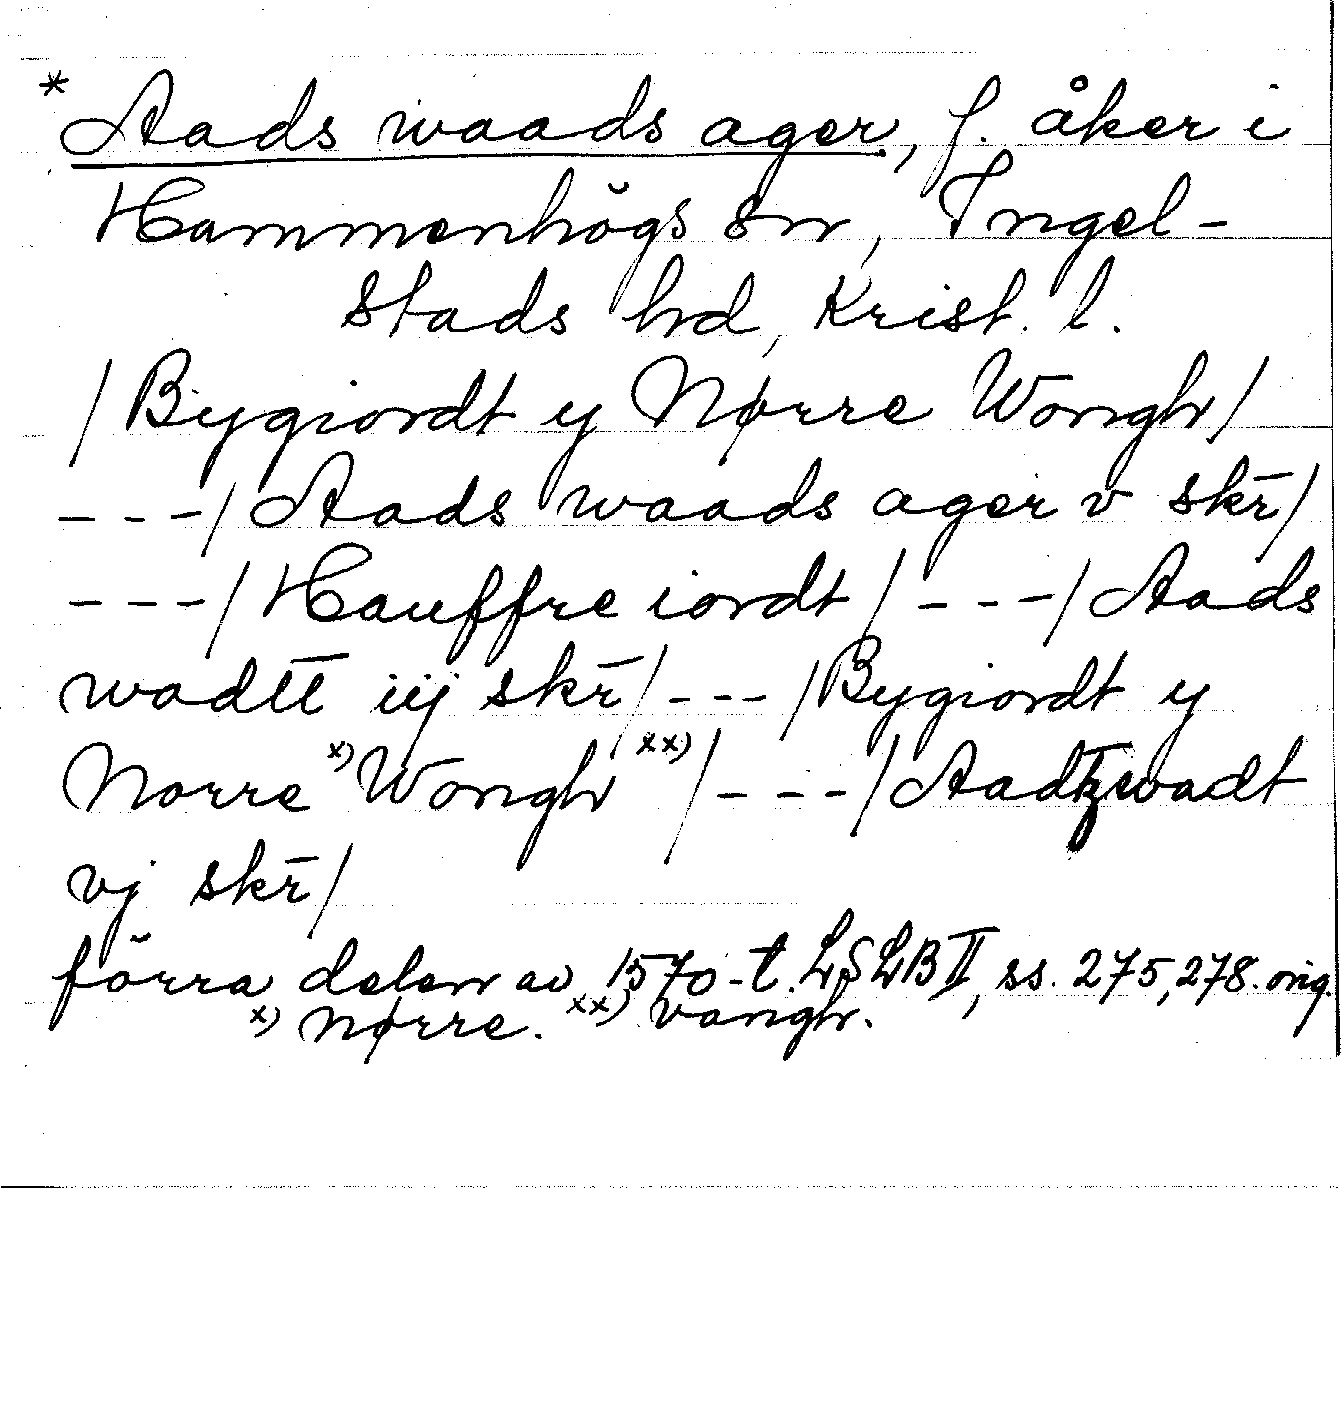 * Aads waads ager, f. åker i
Hammenhögs sn, Ingel-
stads hd, Krist. l.
/Bygiordt y Nørre Wongh/
---/Aads waads ager v skr̄/
---/Hauffre iordt/---/Aads
wadtt iij skr̄/---/Bygiordt y
Norre x) Wongh xx)/---/Aadtzwadt
vj skr̄/
förra delen av 1570-t. LSLB II, ss. 275, 278. orig.
x) Nørre. xx) vongh.